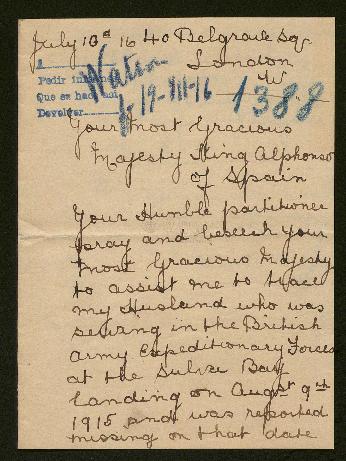 July 10ᵈ 16 40 Belgrave Sqr
London
W
Pedir
Que se hace
Devolver
19-VII-16
1388
Your Most Gracious
Majesty King Alphonso
of Spain
Your Humble partitioner
pray and beseech your
most Gracious Majesty
to assist me to trace
my Husband who was
serving in the British
army Expeditionary Forces
at the Sulve Bay
landing on Augst 9th
1915 and was reported
missing on that date